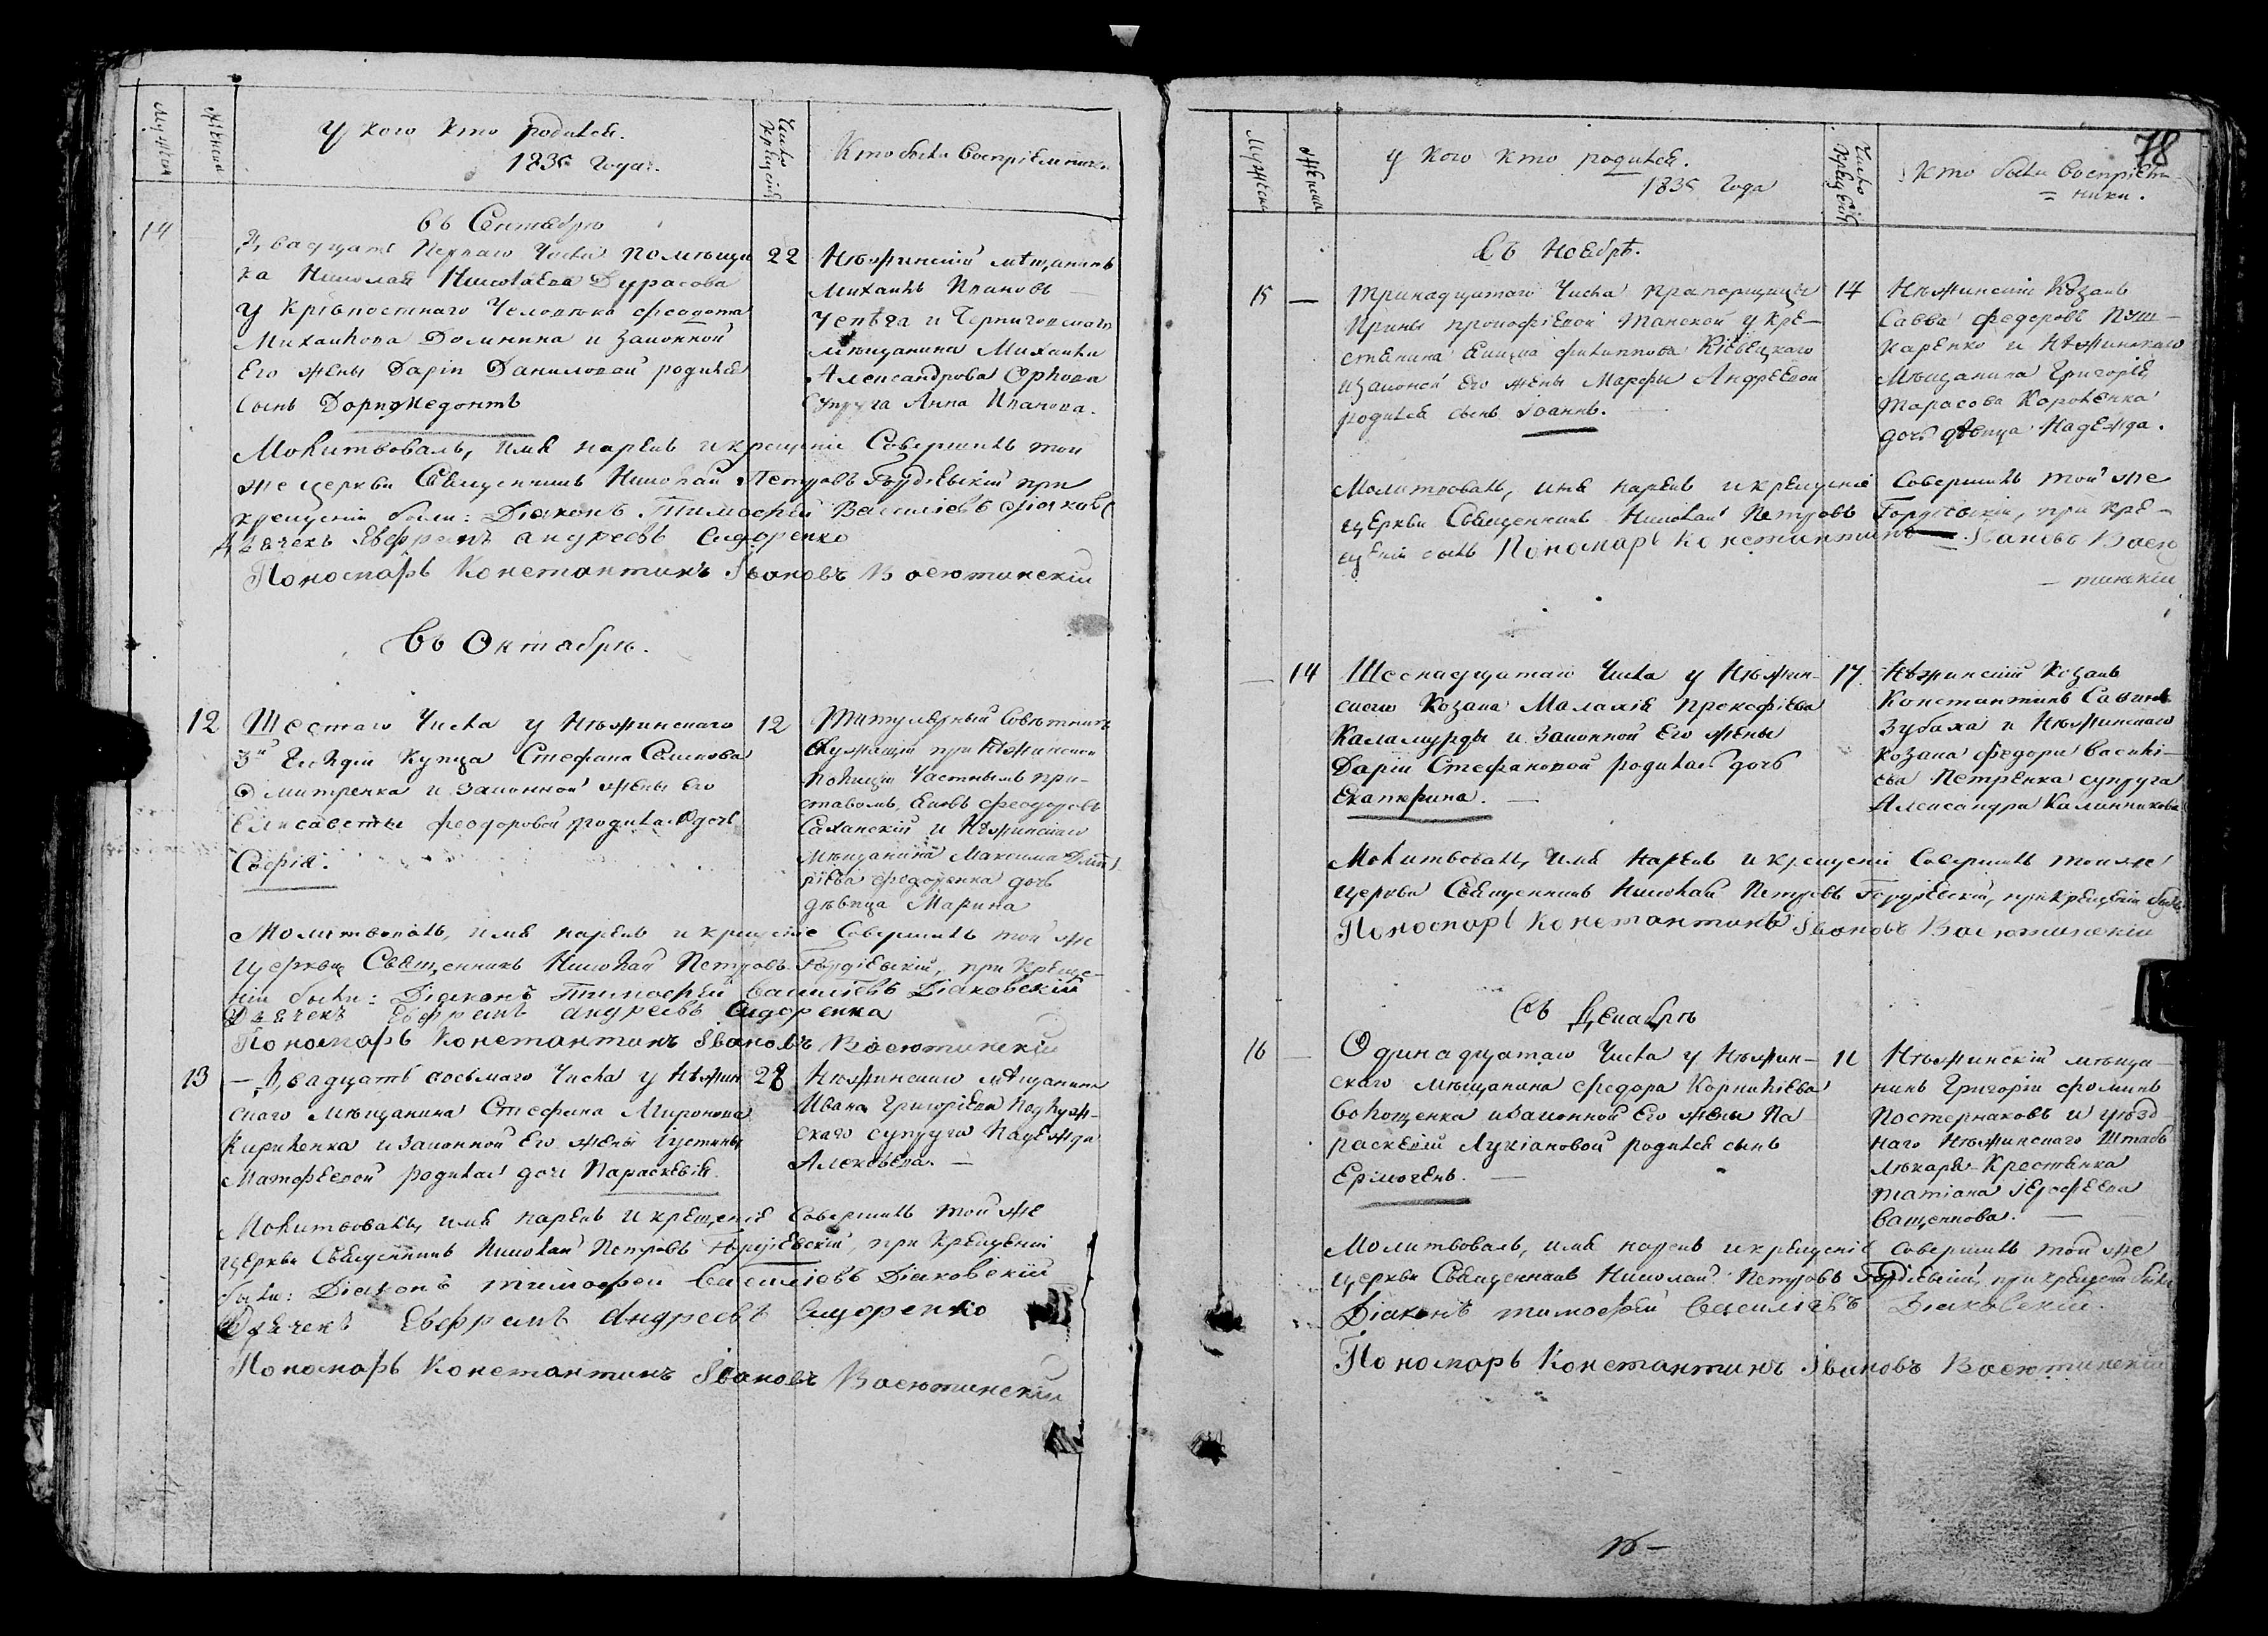 Мужеска
Женска
У кого кто родился.
1835 Года.
Число крещенія
Кто были Воспріемники
14
въ Сентябрѣ
Двадцать Перваго Числа помѣщи
ка Николая Николаева Дурасова
у Крѣпостнаго Человѣка Феодота
Михайлова Домнина и Законной
Его жены Даріи Даниловой родился
сынъ Доримедонтъ
22
Нѣжинскій мѣщанинъ
Михаилъ Ивановъ
Чепѣга и Черниговскаго
мѣщанина Михаила
Александрова Орлова
Супруга Анна Иванова.
Молитвовалъ, Имя нарекъ и крещеніе Совершилъ той
же церкви Священникъ Николай Петровъ Гордіевскій при
крещеніи были: Діаконъ Тимофей Василіевъ Діаковс
Дьячекъ Евфремъ Андреевъ Сидоренко
Пономаръ Константинъ Івановъ Васютинскій
Въ Октябрѣ.
12
Шестаго Числа у Нѣжинскаго
3й Гильдіи Купца Стефана Семенова
Дмитренка и Законной жены его
Елисаветы Феодоровой родилась дочь
Софія.
12
Титулярный Совѣтникъ
Служащій при Нѣжинской
полиціи Частнымъ при-
ставомъ, Яковъ Феодоровъ
Саханскій и Нѣжинскаго
мѣщанина Максима Дмит
ріева Федоренка дочь
дѣвица Марина
Молитвовалъ, имя нарекъ и крещеніе Совершилъ той же
Церкви Священникъ Николай Петровъ Гордіевскій, при Креще-
ніи были: Діаконъ Тимофей Василіевъ Діаковскій
Дьячекъ Евфремъ Андреевъ Сидоренко
Пономаръ Константинъ Івановъ Васютинскій
13
— Двадцать восьмаго Числа у Нѣжин
скаго мѣщанина Стефана Миронова
Кириленка и Законной Его жены Іустины
Матфѣевой родилась дочь Параскевія.
28
Нѣжинскаго мѣщанина
Ивана Григоріева Подлуж-
скаго супруга Надежда
Алексѣева. —
Молитвовалъ, имя нарекъ и крещеніе Совершилъ той же
Церкви Священникъ Николай Петровъ Гордіевскій, при Крещеніи
были: Діаконъ Тимофей Василіевъ Діаковскій
Дьячекъ Евфремъ Андреевъ Сидоренко
Пономаръ Константинъ Івановъ Васютинскій
78
Мужеска
Женска
у Кого кто родился.
1835 Года
Число крещенія
Кто были Воспріем-
= ники.
Въ Ноябрѣ.
15
—
Тринадцатаго Числа прапорщицы
Ирины Прокофіевой Танской у кре-
стянина Якима Филиппова Кіевецкаго
и законой его жены Марфы Андреевой
родился сынъ Іоаннъ. —
14
Нѣжинскій Козакъ
Савва Федоровъ Пуш-
каренко и Нѣжинскаго
Мѣщанина Григорія
Тарасова Короленка
дочь дѣвица Надежда.
Молитвовалъ, имя нарекъ и крещеніе Совершилъ той же
церкви Священникъ Николай Петровъ Гордіевскій, при кре-
щеніи былъ Пономаръ Константинъ Івановъ Васю
— тинскій
—
14
Шеснадцатаго Числа у Нѣжин-
скаго Козака Малахія Прокофіева
Каламурды и Законной Его жены
Даріи Стефановой родилась дочь
Екатерина. —
17.
Нѣжинскій Козакъ
Константинъ Савинъ
Зубаха и Нѣжинскаго
Козака Федора Василі-
ева Петренка супруга
Александра Калинникова
Молитвовалъ, Имя Нарекъ и крещеніе Совершилъ той же
Церкви Священникъ Николай Петровъ Гордіевскій, при Крещеніи былъ
Пономаръ Константинъ Івановъ Васютинскій
Въ Декабрѣ
16
—
Одинадцатаго Числа у Нѣжин-
скаго мѣщанина Федора Корниліева
Волощенка и Законной Его жены Па
раскевіи Лукіановой родился сынъ
Ермогенъ. —
11
Нѣжинскій мѣща-
нинъ Григорій Фоминъ
Постернаковъ и уѣзд
наго Нѣжинскаго Штабъ
Лѣкаря Крестянка
Татіана Іерофеева
Ващенкова. —
Молитвовалъ, имя нарекъ и крещеніе Совершилъ той же
церкви Священникъ Николай Петровъ Гордіевскій, при крещеніи были
Діаконъ Тимофей Василіевъ Діаковскій.
Пономаръ Константинъ Івановъ Васютинскій